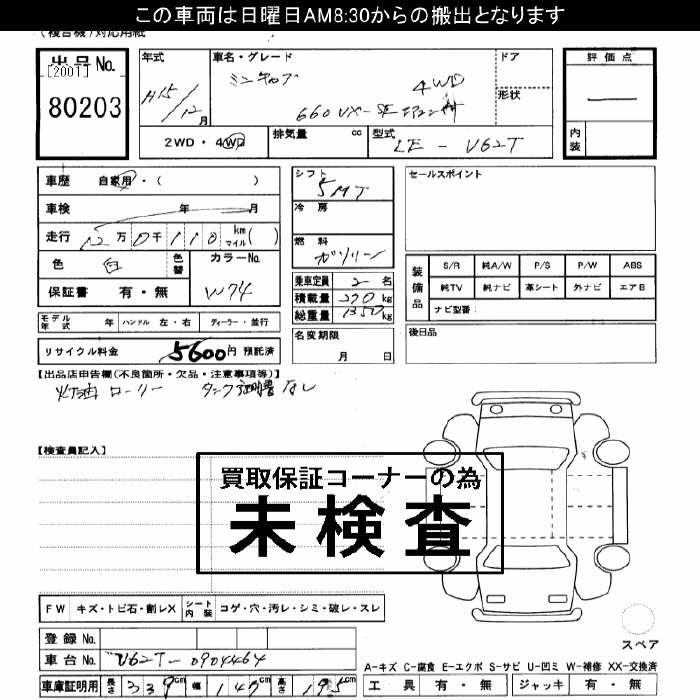 この車両は日曜日AM8:30からの搬出となります
(複合機)対応用紙
出品No.
[2001]
80203
年式
H15/12月
車名・グレード
ミニキャブ
4WD
660 VX-SE エアコン付
ドア
形状
評価点
内装
2WD・4WD
排気量 cc
型式
LE - V62T
車歴 自家用・( )
車検 年 月
走行 12万0千110 km マイル( )
色 白 色替
カラーNo.
W74
保証書 有・無
シフト
5MT
冷房
燃料
ガソリン
乗車定員 2名
積載量 270kg
総重量 1350kg
名変期限
月 日
セールスポイント
装備品
S/R 純A/W P/S P/W ABS
純TV 純ナビ 革シート 外ナビ エアB
ナビ型番:
後日品
モデル年式 年 ハンドル 左・右 ディーラー・並行
リサイクル料金 5600円 預託済
【出品店申告欄(不良箇所・欠品・注意事項等)】
灯油ローリー タンク証明書なし
【検査員記入】
買取保証コーナーの為
未検査
FW キズ・トビ石・割レX シート内装 コゲ・穴・汚レ・シミ・破レ・スレ
登録No.
車台No. U62T-0904464
車庫証明用 長さ 339cm 幅 147cm 高さ 195cm
スペア
A-キズ C-腐食 E-エクボ S-サビ U-凹ミ W-補修 XX-交換済
工具 有・無 ジャッキ 有・無